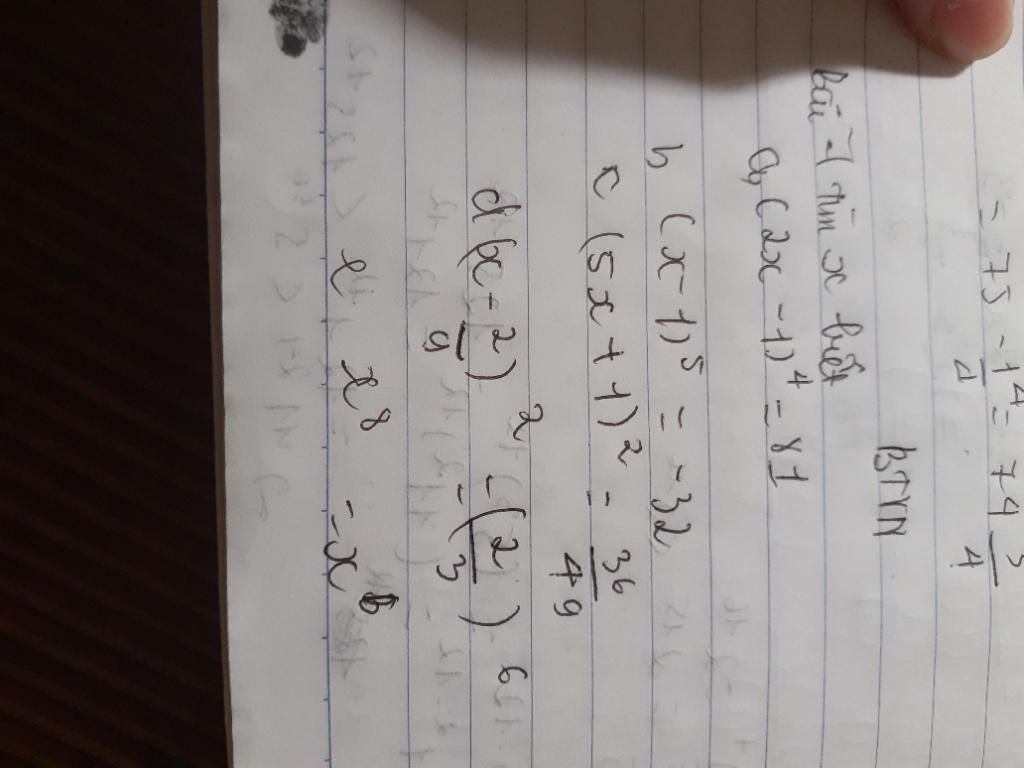 = 75 - \frac{1}{4} = 74 \frac{3}{4}
BTVN
Bài 7 tìm x biết
a, (2x - 1)^4 = 81
b (x - 1)^5 = -32
c (5x + 1)^2 = \frac{36}{49}
d (x - \frac{2}{9})^2 = (\frac{2}{3})^6
e x^8 = x^6